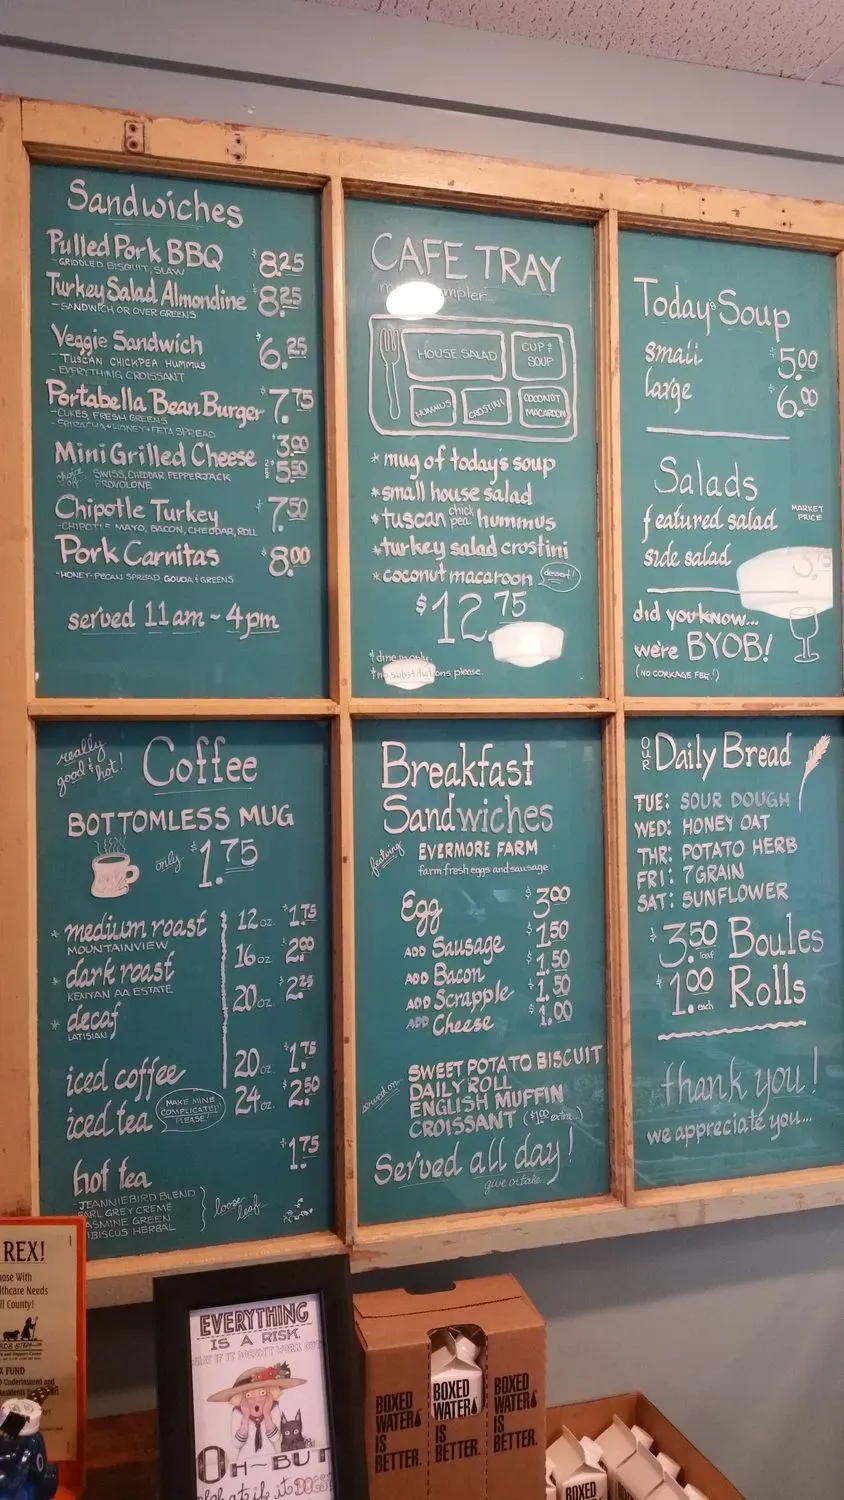 Sandwiches
Pulled Pork BBQ $8.25
-GRIDDLED BISCUIT, SLAW
Turkey Salad Almondine $8.25
-SANDWICH OR OVER GREENS
Veggie Sandwich $6.25
-TUSCAN CHICKPEA HUMMUS
-EVERYTHING CROISSANT
Portabella Bean Burger $7.75
-CUKES, FRESH GREENS
-SRIRACHA+HONEY+FETA SPREAD
Mini Grilled Cheese $3.00
5.50
choice of SWISS, CHEDDAR, PEPPERJACK
PROVOLONE
Chipotle Turkey $7.50
-CHIPOTLE MAYO, BACON, CHEDDAR, ROLL
Pork Carnitas $8.00
-HONEY-PECAN SPREAD GOUDA & GREENS
served 11am ~ 4pm
CAFE TRAY
HOUSE SALAD
CUP of SOUP
HUMMUS
CROSTINI
COCONUT MACAROON
* mug of today's soup
* small house salad
* tuscan chick pea hummus
* turkey salad crostini
* coconut macaroon dessert!
$12.75
* dine in only
* no substitutions please.
Today's Soup
small $5.00
large $6.00
Salads
featured salad MARKET PRICE
side salad
did you know...
we're BYOB!
(NO CORKAGE FEE!)
really good & hot!
Coffee
BOTTOMLESS MUG
only $1.75
* medium roast 12 oz. $1.75
MOUNTAINVIEW
16 oz. $2.00
* dark roast
KENYAN AA ESTATE
20 oz. $2.25
* decaf
LATISIAN
iced coffee 20 oz. $1.75
iced tea 24 oz. $2.50
MAKE MINE COMPLICATED PLEASE!
hot tea $1.75
JEANNIEBIRD BLEND
EARL GREY CREME
JASMINE GREEN
HIBISCUS HERBAL
loose leaf
Breakfast
Sandwiches
featuring EVERMORE FARM
farm fresh eggs and sausage
Egg $3.00
ADD Sausage $1.50
ADD Bacon $1.50
ADD Scrapple $1.50
ADD Cheese $1.00
served on... SWEET POTATO BISCUIT
DAILY ROLL
ENGLISH MUFFIN
CROISSANT ($1.00 extra..)
Served all day!
give or take...
OUR Daily Bread
TUE: SOUR DOUGH
WED: HONEY OAT
THR: POTATO HERB
FRI: 7 GRAIN
SAT: SUNFLOWER
$3.50 loaf Boules
$1.00 each Rolls
thank you!
we appreciate you...
REX!
hose With
lthcare Needs
ll County!
X FUND
EVERYTHING
IS A RISK.
WHAT IF IT DOESN'T WORK OUT
OH~BUT
what if it DOES?
BOXED WATER IS BETTER.
BOXED WATER IS BETTER.
BOXED WATER IS BETTER.
BOXED